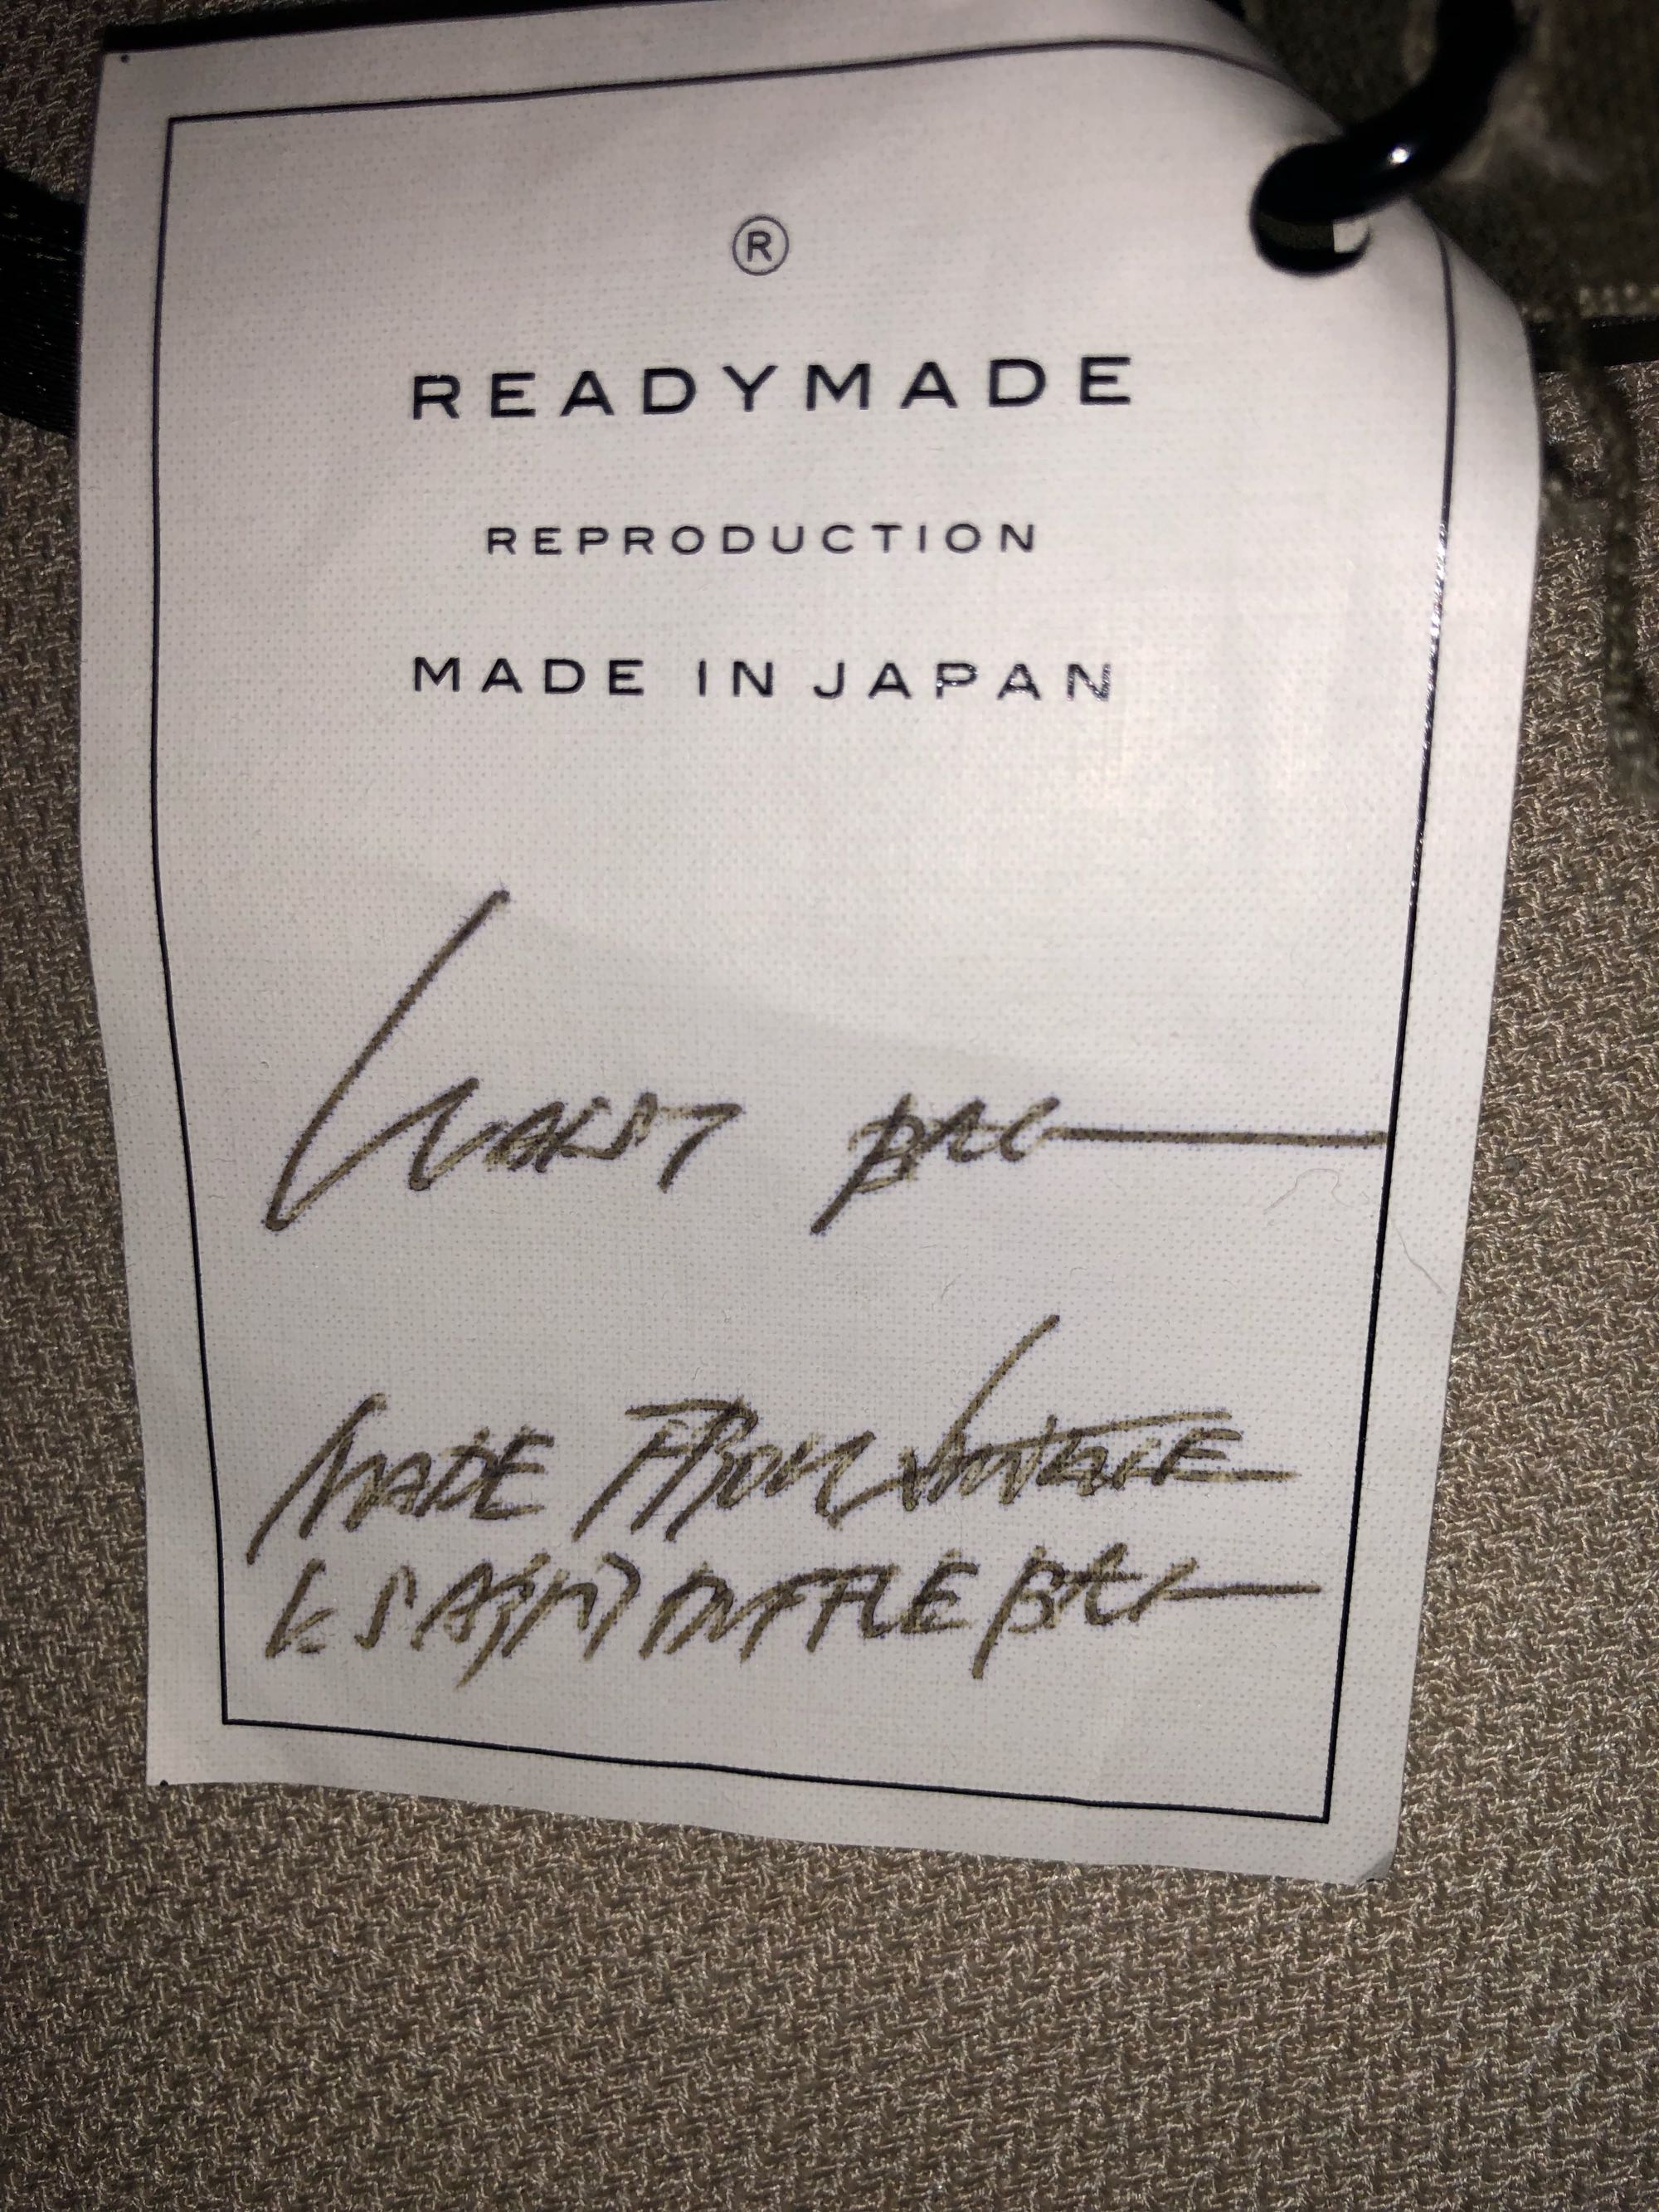 ®
READYMADE
REPRODUCTION
MADE IN JAPAN
WAIST BAG
MADE FROM VINTAGE
US ARMY DUFFLE BAG